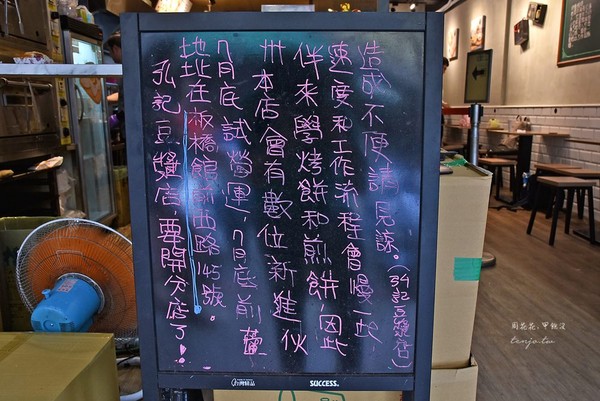 弘記豆漿店,要開分店了!
地址在板橋館前西路145號。
7月底試營運,7月底前蘆
卅本店會有數位新進伙
伴來學烤餅和煎餅,因此
速度和工作流程會慢一些
造成不便請見諒。(弘記豆漿店)
台灣精品
SUCCESS.
周花花，甲飽沒
tenjo.tw